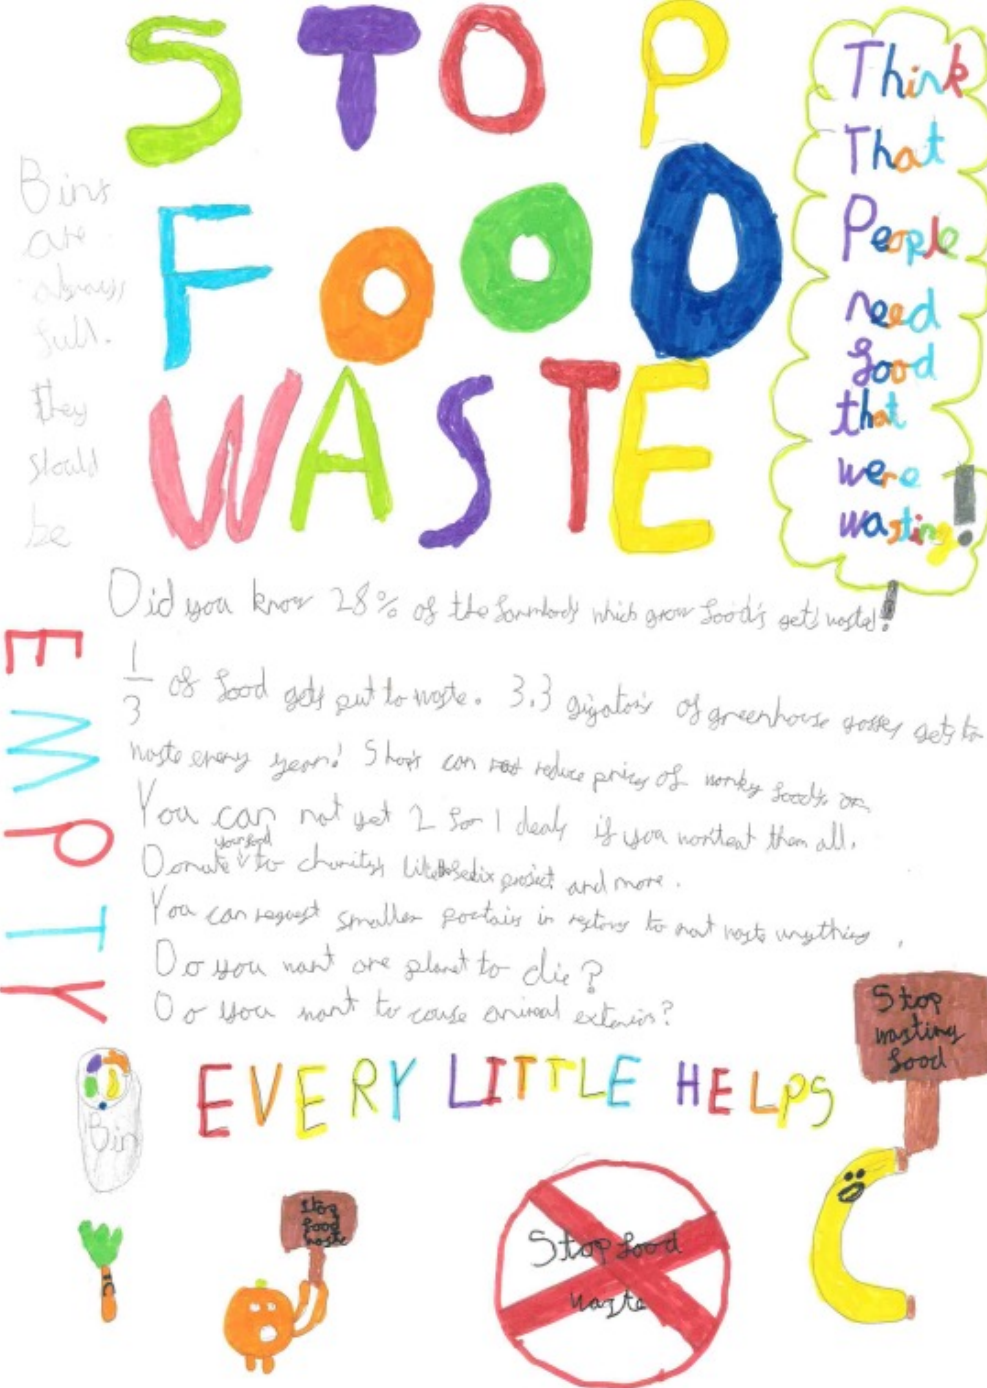 STOP
FOOD
WASTE
Think
That
People
need
food
that
were
wasting!
Bins
are
always
full.
they
should
be
EMPTY
Did you know 28% of the farmlands which grow food's gets waste!
1/3 of food gets put to waste. 3.3 gigatons of greenhouse gasses gets to
waste every year! Shops can reduce prices of wonky food's or
You can not get 2 for 1 deals if you wont eat them all.
Donate your food to charitys like the felix project and more.
You can request smaller portains in to not waste anything.
Do you want are planet to die?
Do you want to cause animal?
EVERY LITTLE HELPS
Bin
Stop
food
waste
Stop food
waste
Stop
wasting
food